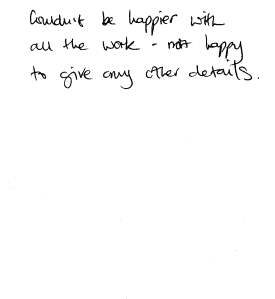 Couldn't be happier with
all the work - not happy
to give any other details.